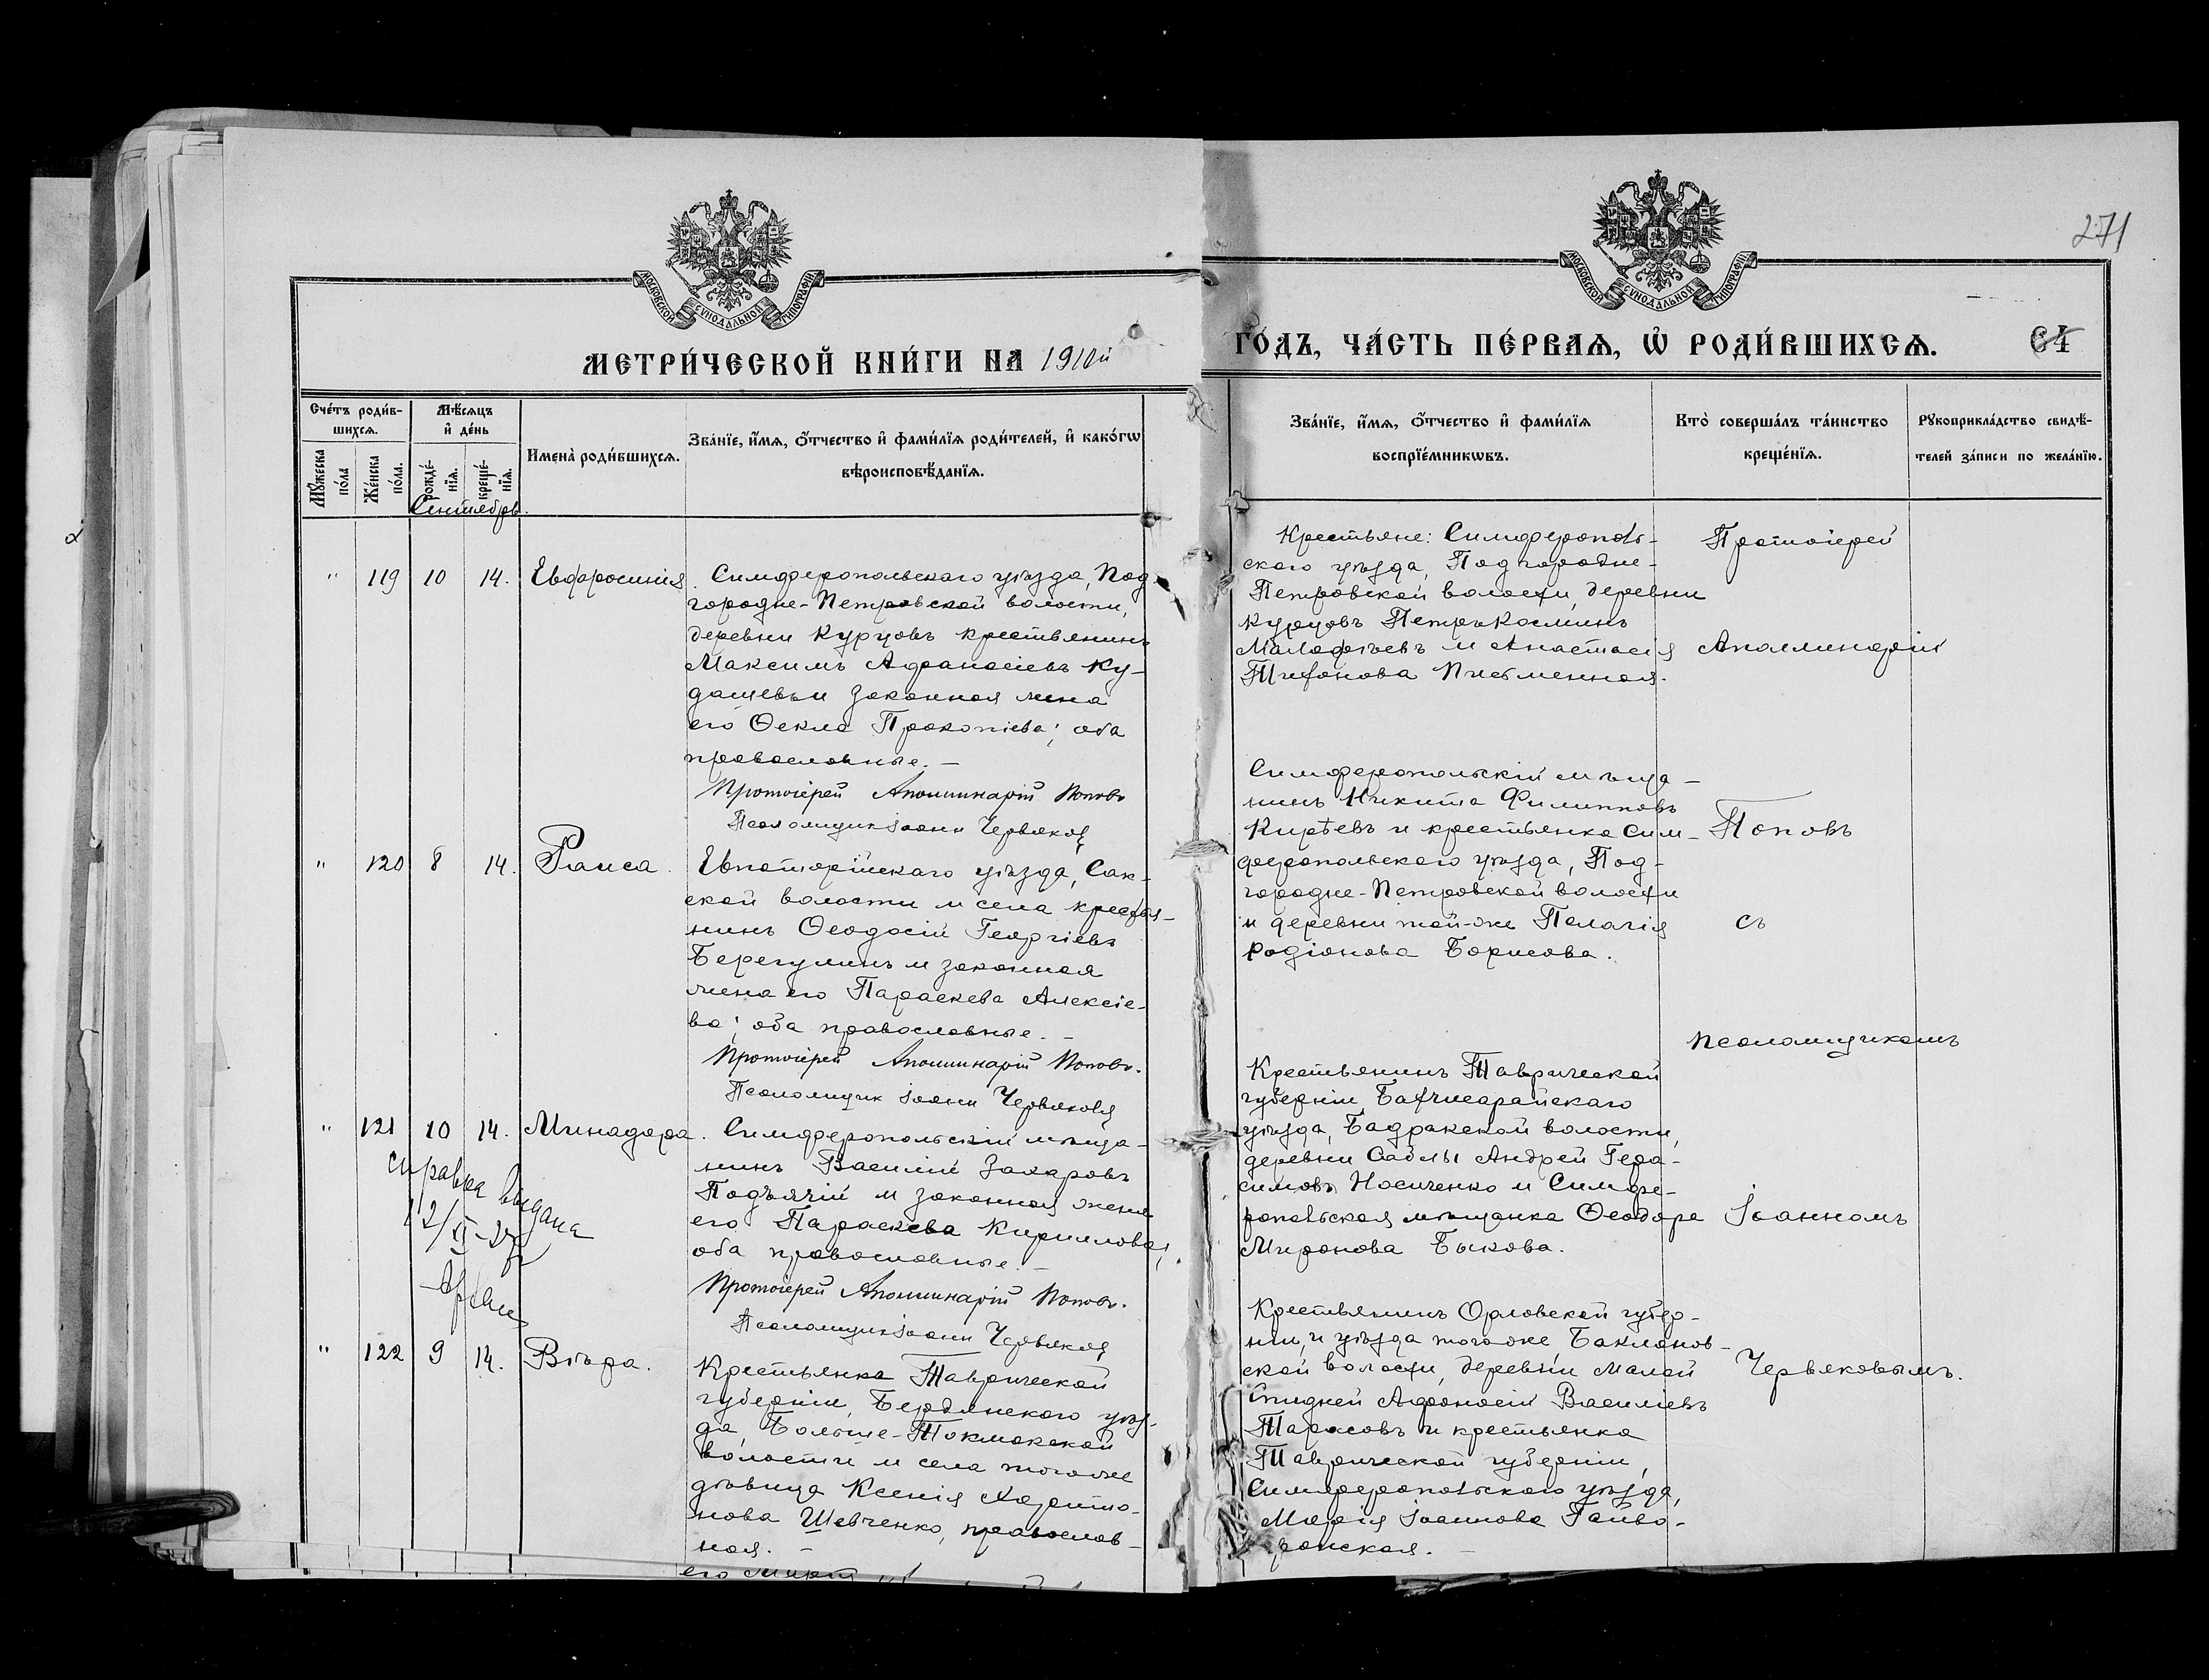 271
МОСКОВСКОЙ СѴНОДАЛЬНОЙ ТИПОГРАФІИ
МОСКОВСКОЙ СѴНОДАЛЬНОЙ ТИПОГРАФІИ
МЕТРИ́ЧЕСКОЙ КНИ́ГИ НА 1910й
ГО́ДЪ, ЧА́СТЬ ПЕ́РВАѦ, Ѡ҆ РОДИ́ВШИХСѦ.
Сче́тъ роди́в-
шихсѧ.
Мѣ́сѧцъ
и҆ де́нь
Мꙋ́жеска по́ла
Же́нска по́ла.
рожде́-
нїѧ.
креще́-
нїѧ.
Имена̀ роди́вшихсѧ.
Зва́нїе, и҆́мѧ, ѻ҆́тчество и҆ фами́лїѧ роди́телей, и҆ како́гѡ
вѣроисповѣ́данїѧ.
Зва́нїе, и҆́мѧ, ѻ҆́тчество и҆ фами́лїѧ
воспрїе́мникѡвъ.
Кто̀ соверша́лъ та́инство
креще́нїѧ.
Рꙋкоприкла́дство свидѣ́-
телей за́писи по жела́нїю.
Сентябрь.
" 119 10 14. Евфросинія.
Симферопольскаго уѣзда, Под-
городне-Петровской волости,
деревни Курцовъ крестьянинъ
Максимъ Афанасіевъ Ку-
дашевъ и законная жена
его Ѳекла Прокопіева; оба
православные. –
Протоіерей Аполлинарій Поповъ
Псаломщик Іоанн Червяковъ
Крестьяне: Симферополь-
ского уѣзда, Подгородне-
Петровской волости, деревни
Курцовъ Петръ Косминъ
Малафѣевъ и Анастасія
Тифонова Письменная.
" 120 8 14. Раиса.
Евпаторійскаго уѣзда, Сак-
ской волости и села крестья-
нинъ Ѳеодосій Георгіевъ
Берегулинъ и законная
жена его Параскева Алексіе-
ва; оба православные. –
Протоіерей Аполлинарій Поповъ.
Псаломщик Іоанн Червяковъ
Симферопольскій мѣща-
нинъ Никита Филипповъ
Кирѣевъ и крестьянка Сим-
феропольского уѣзда, Под-
городне-Петровской волости
и деревни той-же Пелагія
Родіонова Борисова.
" 121 10 14. Минадора.
справка выдана
Симферопольскій мѣща-
нинъ Василій Захаровъ
Подъячій и законная жена
его Параскева Кириллова;
оба православные. –
Протоіерей Аполлинарій Поповъ.
Псаломщик Іоанн Червяковъ
Крестьянинъ Таврической
губерніи Бахчисарайскаго
уѣзда, Бадракской волости,
деревни Саблы Андрей Гера-
симовъ Носиченко и Симфе-
ропольская мѣщанка Ѳеодора
Миронова Быкова.
" 122 9 14. Вѣра.
Крестьянка Таврической
губерніи, Бердянского уѣз-
да, Больше-Токмакской
волости и села того же
дѣвица Ксенія Харито-
нова Шевченко, православ-
ная. –
Крестьянинъ Орловской губер-
ніи, и уѣзда того же, Баклановс-
кой волости, деревни Малой
Афанасій Василіевъ
Тарасовъ и крестьянка
Таврической губерніи,
Симферопольского уѣзда,
Марія Іоаннова Гайво-
ронская. –
Протоіерей
Аполлинарій
Поповъ
съ
псаломщикомъ
Іоанномъ
Червяковымъ.